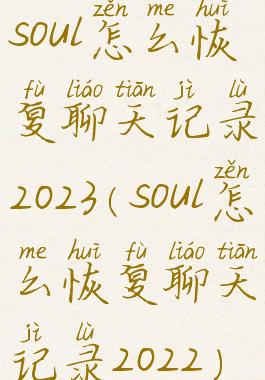 zěn me huī
soul怎么恢
fù liáo tiān jì lù
复聊天记录
zěn
2023(soul怎
me huī fù liáo tiān
么恢复聊天
jì lù
记录2022)